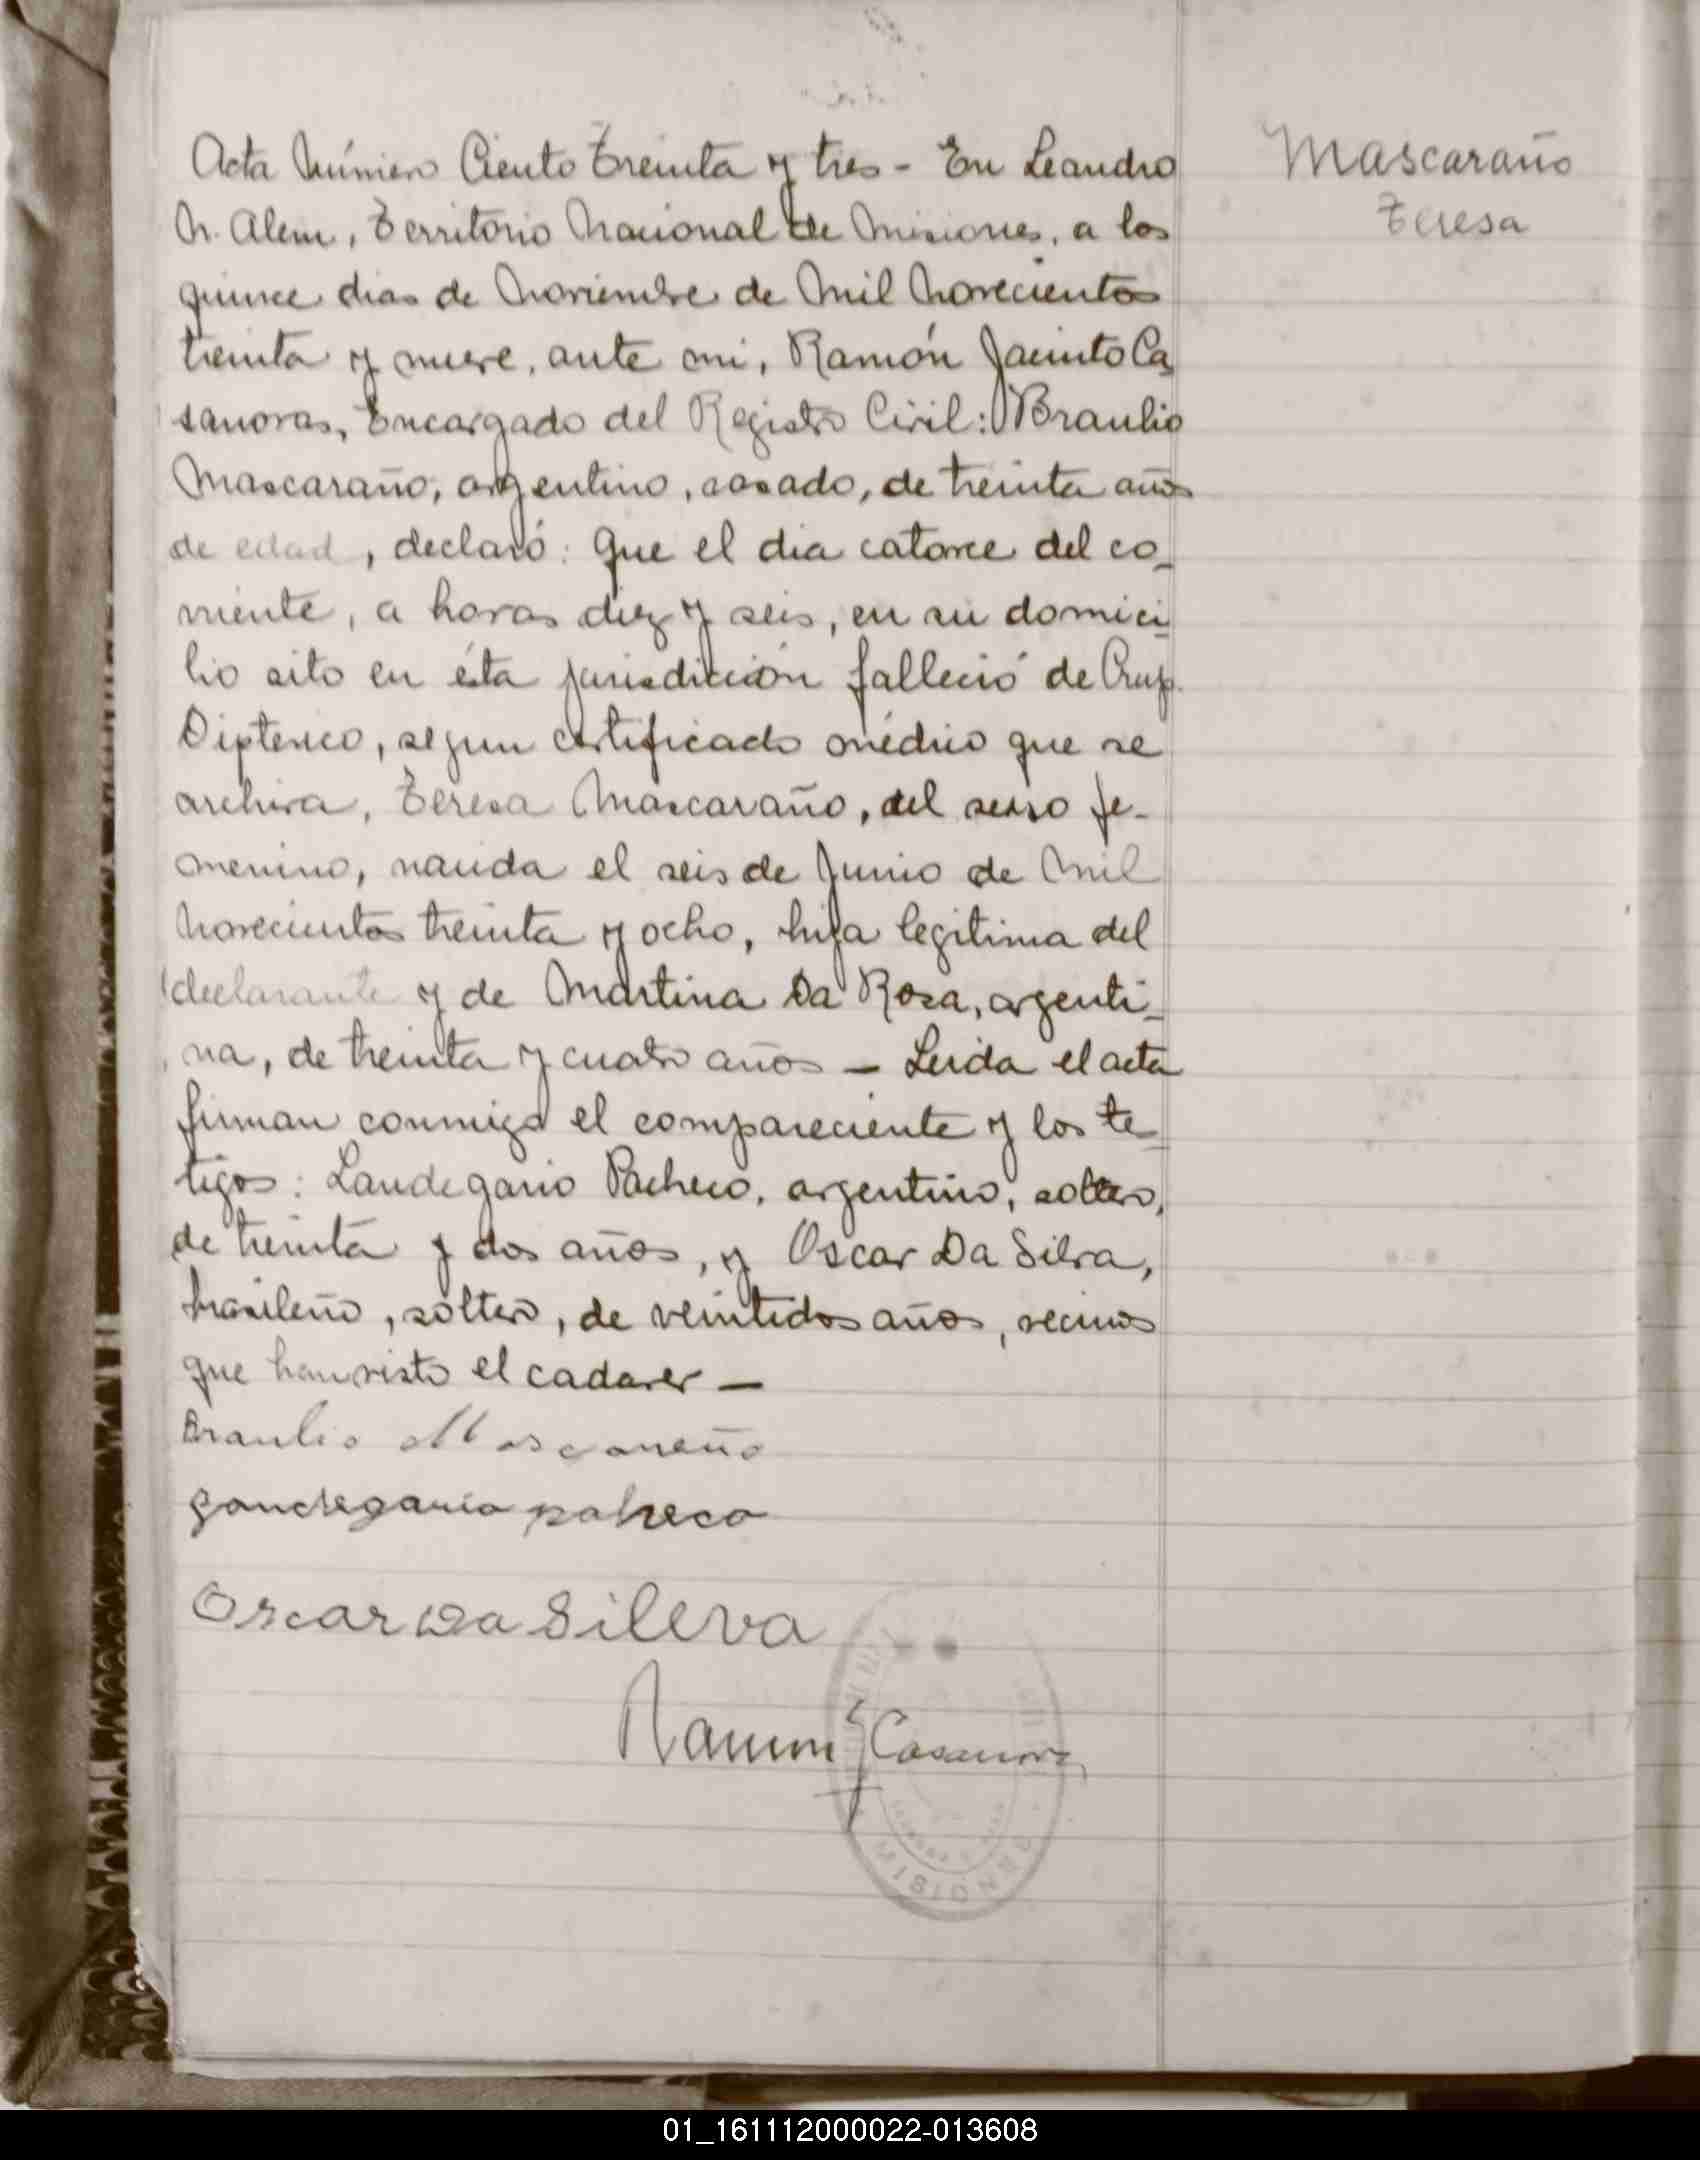 Acta Número Ciento Treinta y tres - En Leandro
N. Alem, Territorio Nacional de Misiones, a los
quince dias de Noviembre de Mil Novecientos
treinta y nueve, ante mi, Ramón Jacinto Ca_
sanovas, Encargado del Registro Civil: Braulio
Mascaraño, argentino, casado, de treinta años
de edad, declaró: Que el dia catorce del co_
rriente, a horas diez y seis, en su domici_
lio sito en ésta jurisdicción falleció de Crup.
Difterico, segun certificado médico que se
archiva, Teresa Mascaraño, del sexo fe-
menino, nacida el seis de Junio de Mil
Novecientos treinta y ocho, hija legitima del
declarante y de Martina Da Rosa, argenti_
na, de treinta y cuatro años - Leida el acta
firman conmigo el compareciente y los te_
tigos: Landegario Pacheco, argentino, soltero,
de treinta y dos años, y Oscar Da Silva,
brasileño, soltero, de veintidos años, vecinos
que han visto el cadaver -
Braulio Mascareño
Landegario paheco
Oscar Da Sileva
Ramon J Casanova
Mascaraño
Teresa
MISIONES
01_161112000022-013608